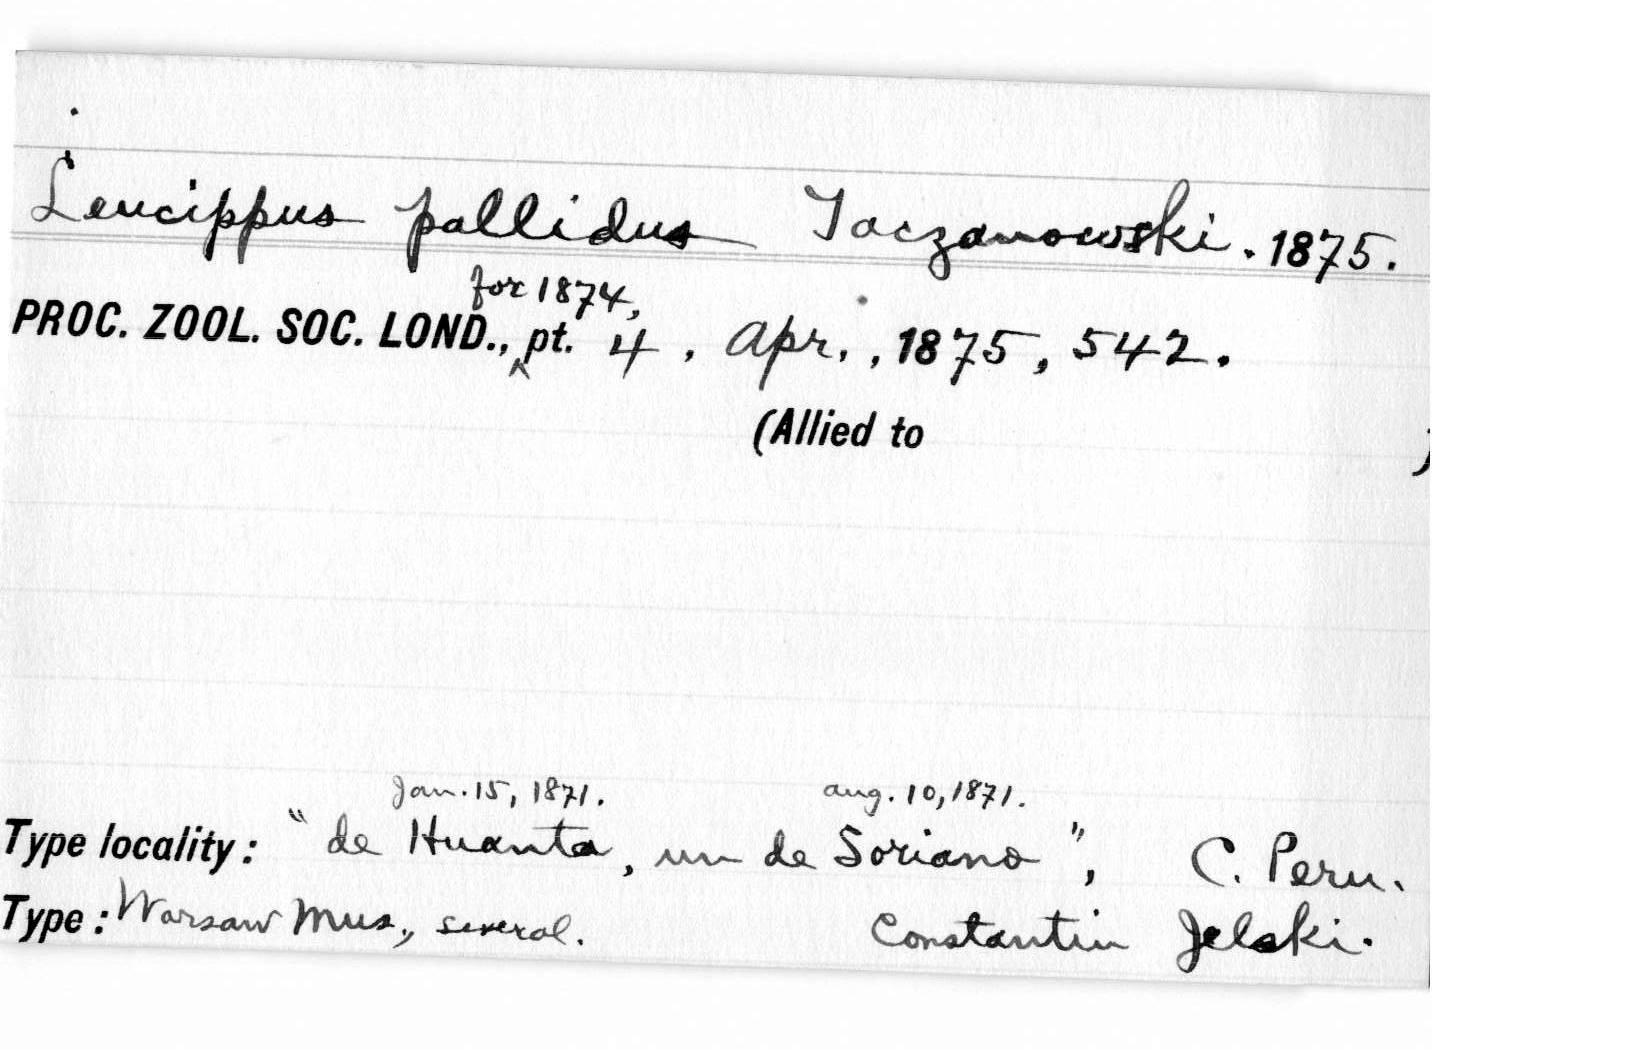 Leucippus pallidus Taczanowski. 1875.
for 1874,
PROC. ZOOL. SOC. LOND., pt. 4, Apr., 1875, 542.
(Allied to )
Jan. 15, 1871. Aug. 10, 1871.
Type locality: "de Huanta, un de Soriano", C. Peru.
Type: Warsaw Mus., several. Constantin Jelski.